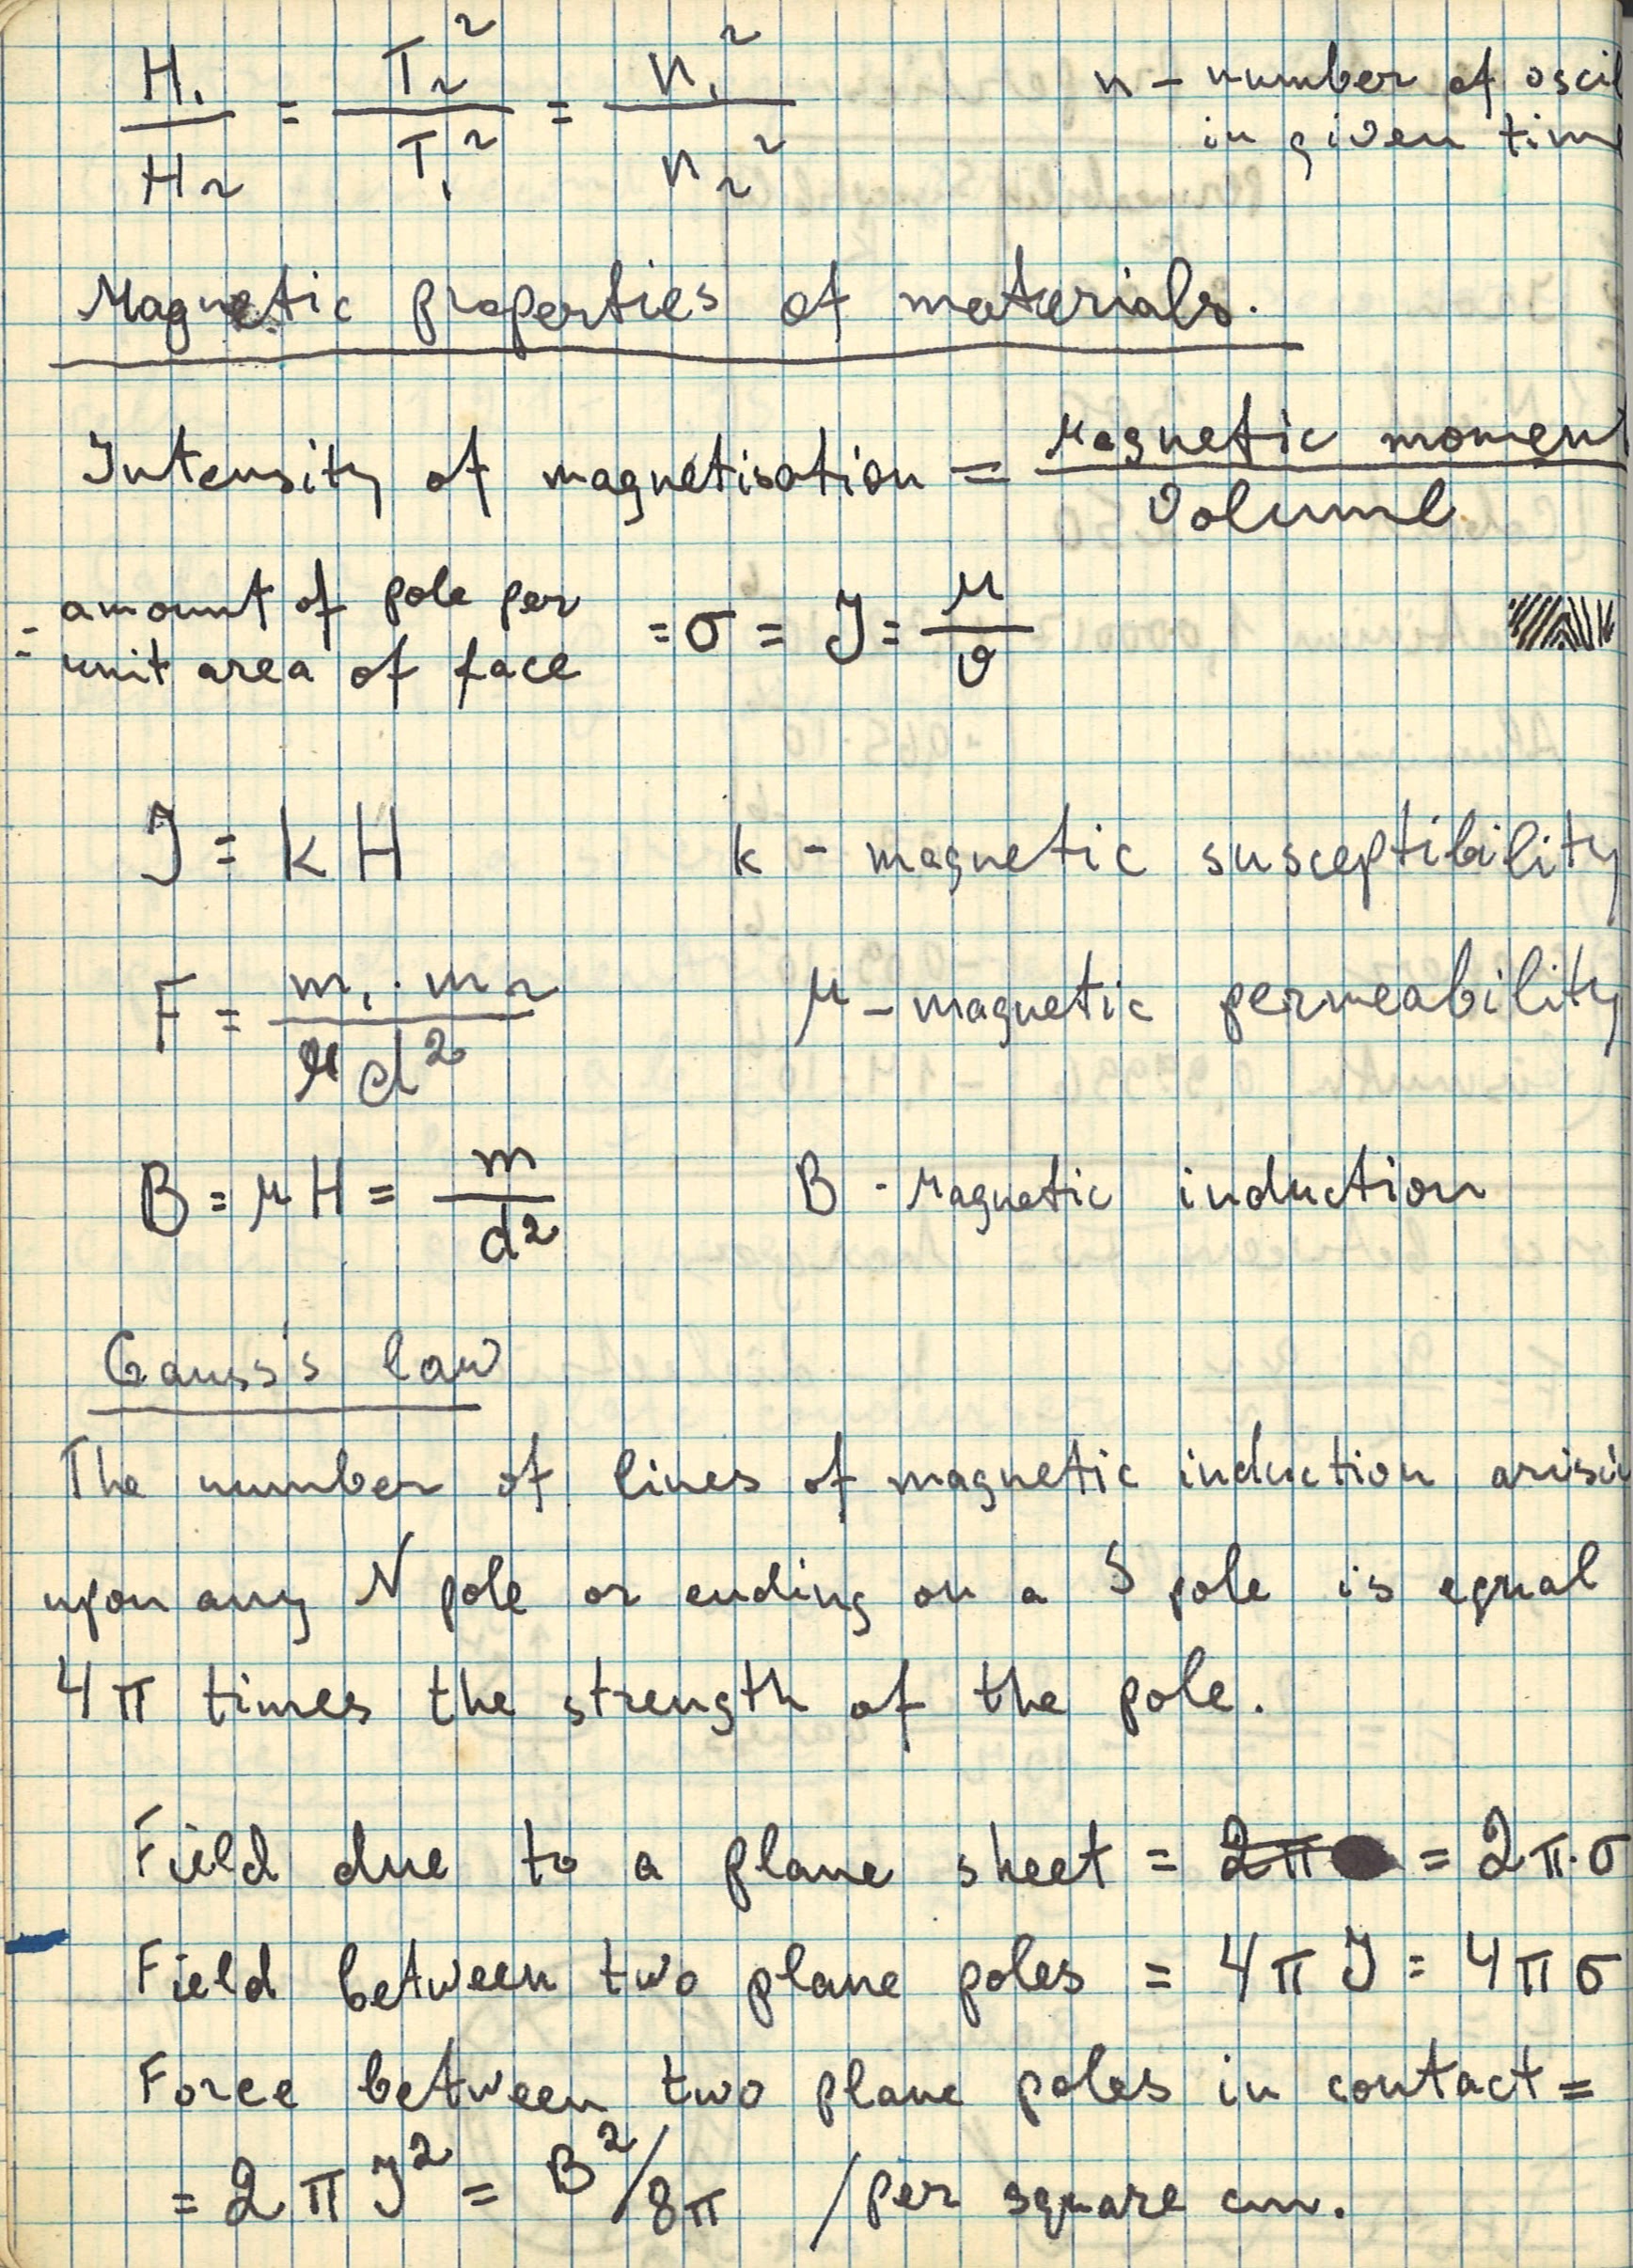 H₁/H₂ = T₂²/T₁² = n₁²/n₂² n – number of oscil
in given tim
Magnetic properties of materials.
Intensity of magnetisation = Magnetic moment / Volume
= amount of pole per unit area of face = σ = J = M/v
J = k H k - magnetic susceptibility
F = m₁·m₂ / μd² μ – magnetic permeability
B = μ H = m/d² B - Magnetic induction
Gauss's law
The number of lines of magnetic induction arisi
upon any N pole or ending on a S pole is equal
4π times the strength of the pole.
Field due to a plane sheet = 2π = 2π·σ
Field between two plane poles = 4π J = 4πσ
Force between two plane poles in contact =
= 2πJ² = B²/8π /per square cm.